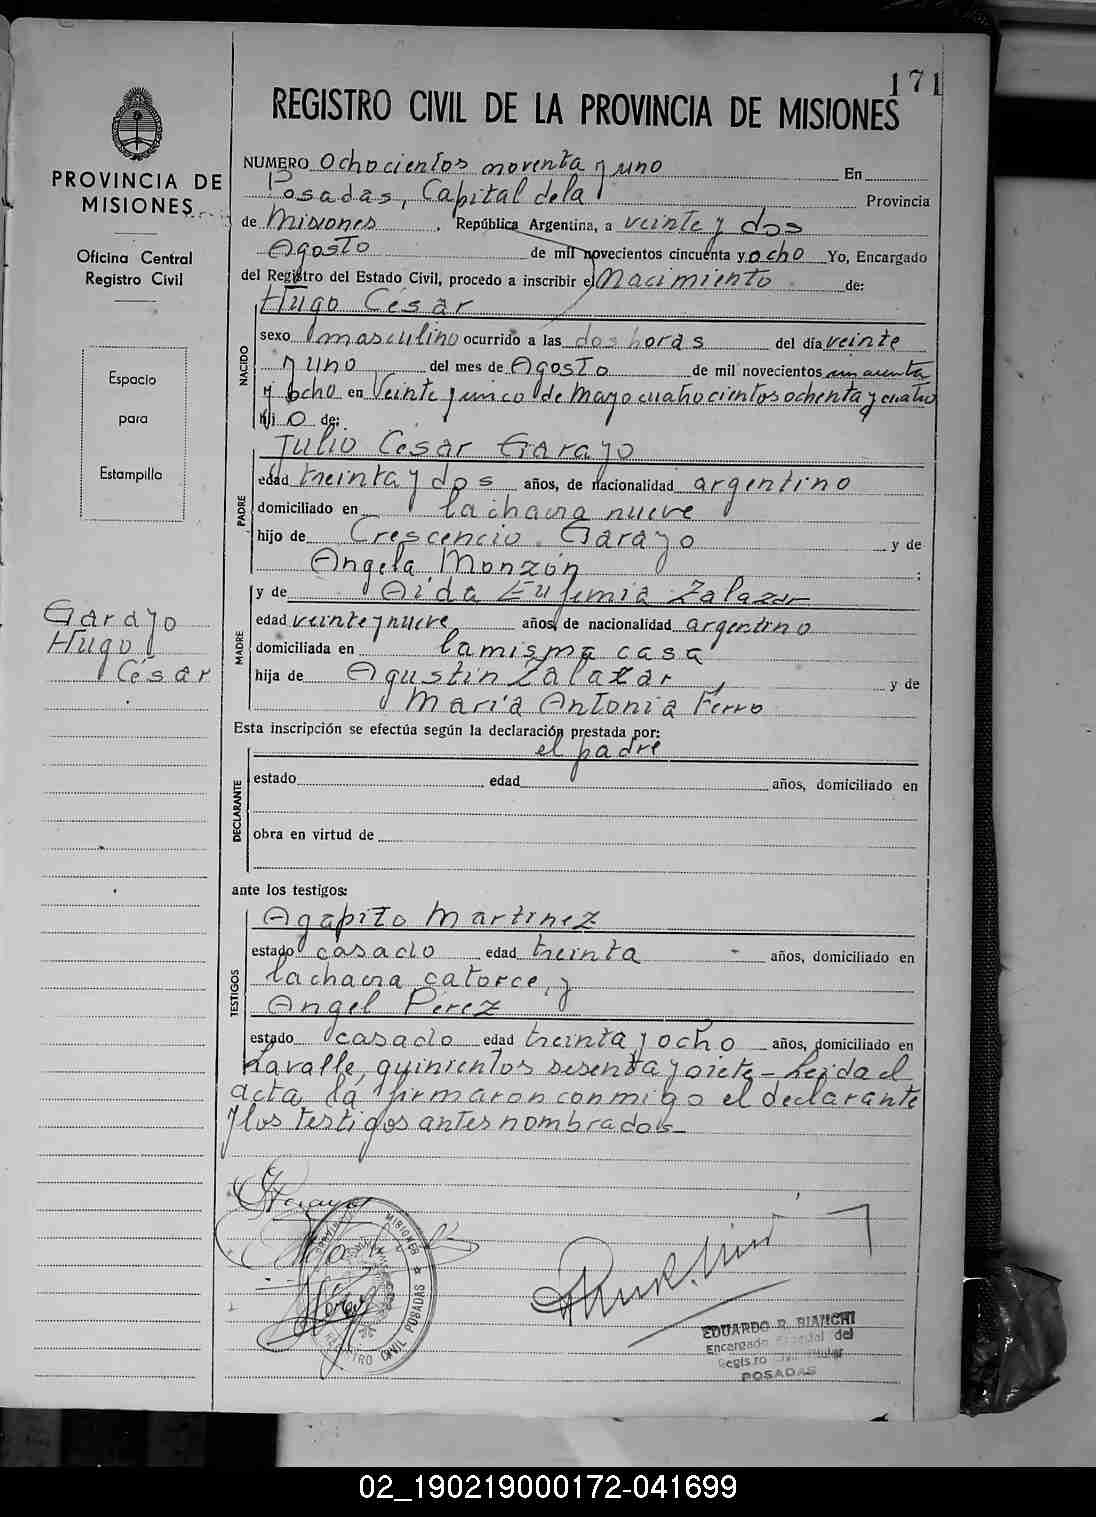 171
REGISTRO CIVIL DE LA PROVINCIA DE MISIONES
PROVINCIA DE
MISIONES
Oficina Central
Registro Civil
Espacio
para
Estampilla
Garayo
Hugo
César
NUMERO Ochocientos noventa y uno En
Posadas, Capital de la Provincia
de Misiones, República Argentina, a veinte y dos
Agosto de mil novecientos cincuenta y ocho Yo, Encargado
del Registro del Estado Civil, procedo a inscribir el Nacimiento de:
Hugo Cesar
NACIDO
sexo masculino ocurrido a las dos horas del día veinte
y uno del mes de Agosto de mil novecientos
y ocho en Veinte y cinco de Mayo cuatrocientos ochenta y cuatro
hijo de:
Julio Cesar Garayo
PADRE
edad treinta y dos años, de nacionalidad argentino
domiciliado en la chacra nueve
hijo de Crescencio Garayo y de
Angela Monzón ;
y de Aida Eufemia Zalazar
MADRE
edad veinte y nueve años, de nacionalidad argentino
domiciliada en la misma casa
hija de Agustin Zalazar, y de
María Antonia Ferro
Esta inscripción se efectúa según la declaración prestada por:
el padre
DECLARANTE
estado edad años, domiciliado en
obra en virtud de
ante los testigos:
TESTIGOS
Agapito Martinez
estado casado edad treinta - años, domiciliado en
la chacra catorce, y
Angel Pérez
estado casado edad treinta y ocho años, domiciliado en
Lavalle, quinientos sesenta y siete - Leida el
acta la firmaron conmigo el declarante
y los testigos antes nombrados_
Garayo
MISIONES
REGISTRO CIVIL POSADAS
EDUARDO R. BIANCHI
Encargado del
Registro
POSADAS
02_190219000172-041699